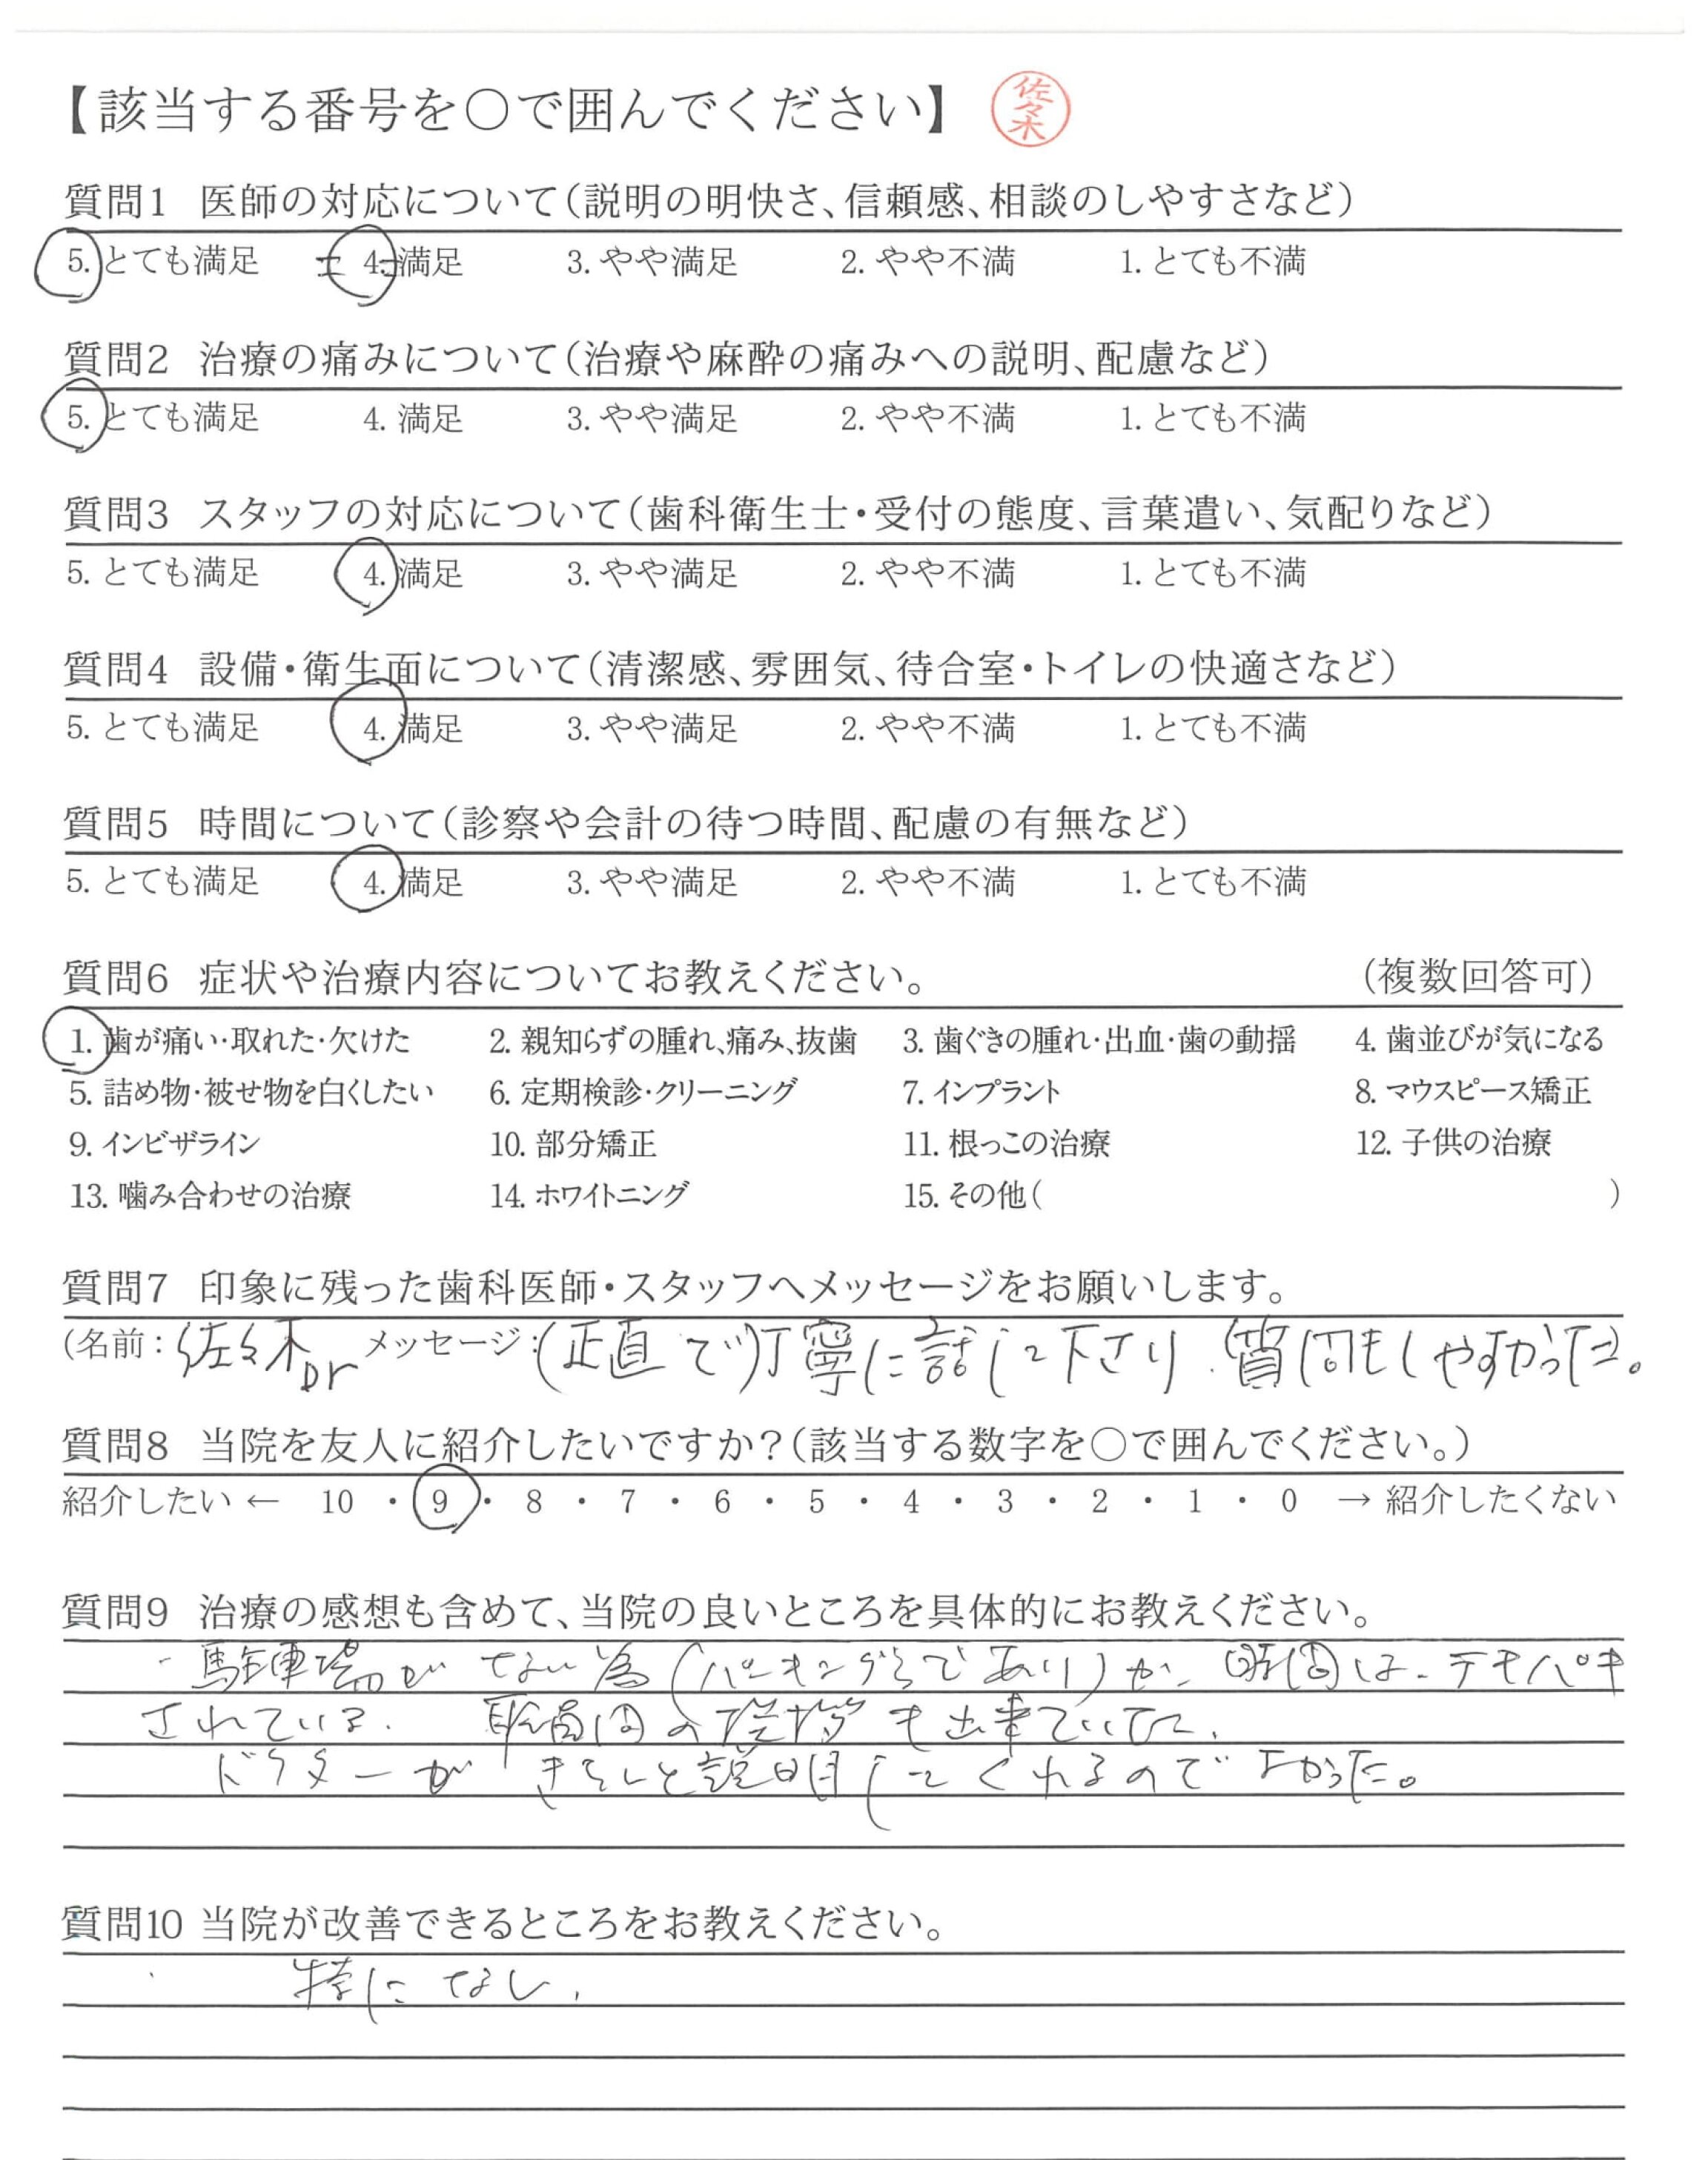 【該当する番号を○で囲んでください】 佐々木
質問1 医師の対応について(説明の明快さ、信頼感、相談のしやすさなど)
5. とても満足 4. 満足 3. やや満足 2. やや不満 1. とても不満
質問2 治療の痛みについて(治療や麻酔の痛みへの説明、配慮など)
5. とても満足 4. 満足 3. やや満足 2. やや不満 1. とても不満
質問3 スタッフの対応について(歯科衛生士・受付の態度、言葉遣い、気配りなど)
5. とても満足 4. 満足 3. やや満足 2. やや不満 1. とても不満
質問4 設備・衛生面について(清潔感、雰囲気、待合室・トイレの快適さなど)
5. とても満足 4. 満足 3. やや満足 2. やや不満 1. とても不満
質問5 時間について(診察や会計の待つ時間、配慮の有無など)
5. とても満足 4. 満足 3. やや満足 2. やや不満 1. とても不満
質問6 症状や治療内容についてお教えください。 (複数回答可)
1. 歯が痛い・取れた・欠けた 2. 親知らずの腫れ、痛み、抜歯 3. 歯ぐきの腫れ・出血・歯の動揺 4. 歯並びが気になる
5. 詰め物・被せ物を白くしたい 6. 定期検診・クリーニング 7. インプラント 8. マウスピース矯正
9. インビザライン 10. 部分矯正 11. 根っこの治療 12. 子供の治療
13. 噛み合わせの治療 14. ホワイトニング 15. その他( )
質問7 印象に残った歯科医師・スタッフへメッセージをお願いします。
(名前：佐々木Dr メッセージ：(正直で)丁寧に話して下さり、質問もしやすかった。
質問8 当院を友人に紹介したいですか？(該当する数字を○で囲んでください。)
紹介したい ← 10 ・ 9 ・ 8 ・ 7 ・ 6 ・ 5 ・ 4 ・ 3 ・ 2 ・ 1 ・ 0 → 紹介したくない
質問9 治療の感想も含めて、当院の良いところを具体的にお教えください。
・駐車場がない為(パーキングであり)が、時間は、テキパキ
されている。 職員間の挨拶も出来ていて、
ドクターがきちんと説明してくれるのでよかった。
質問10 当院が改善できるところをお教えください。
・ 特になし、